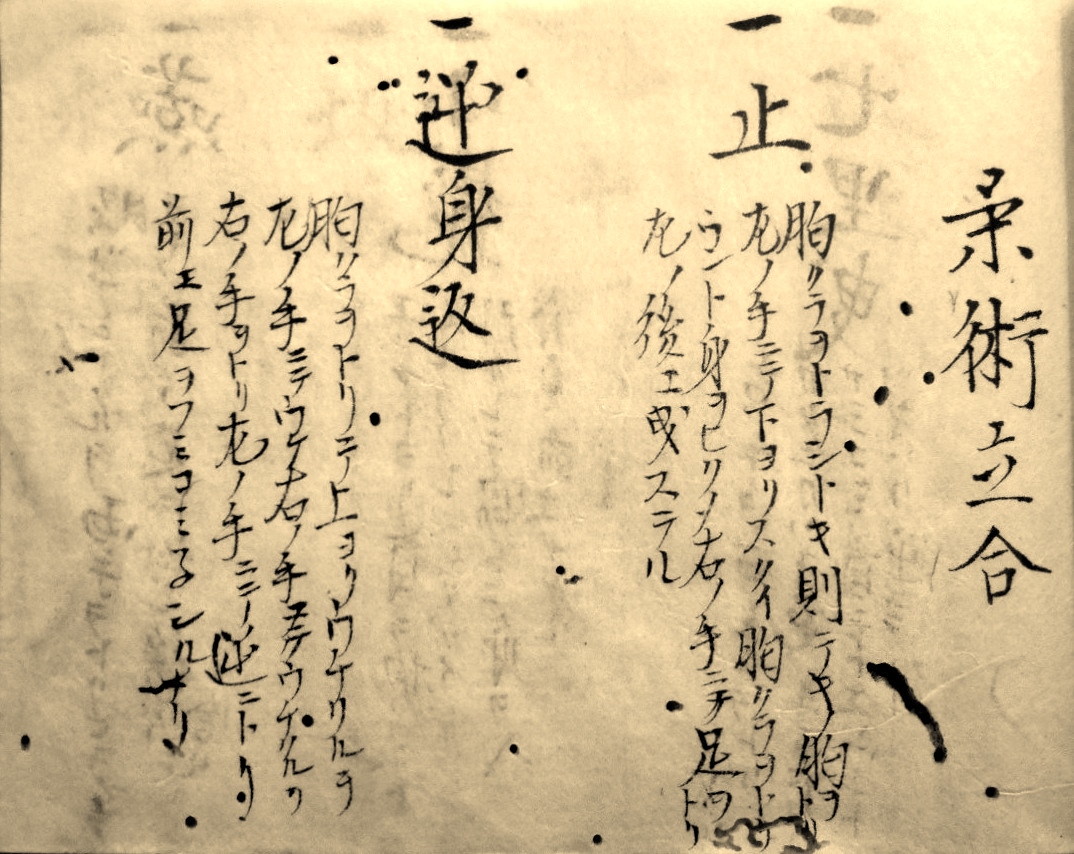 柔術立合
一 止
胸クラヲトラントキ則テキ胸ヲトリ
左ノ手ニテ下ヨリスクイ胸クラヲトラ
ント身ヲヒリメ右ノ手ニテ足ヲトリ
左ノ後エ曵ステル
一 逆身返
胸クラヲトリニテ上ヨリウケクルヲ
左ノ手ニテウケ右ノ手ニテウケクル
右ノ手ヲトリ左ノ手ニテ逆ニトリ
前エ足ヲフミコミ